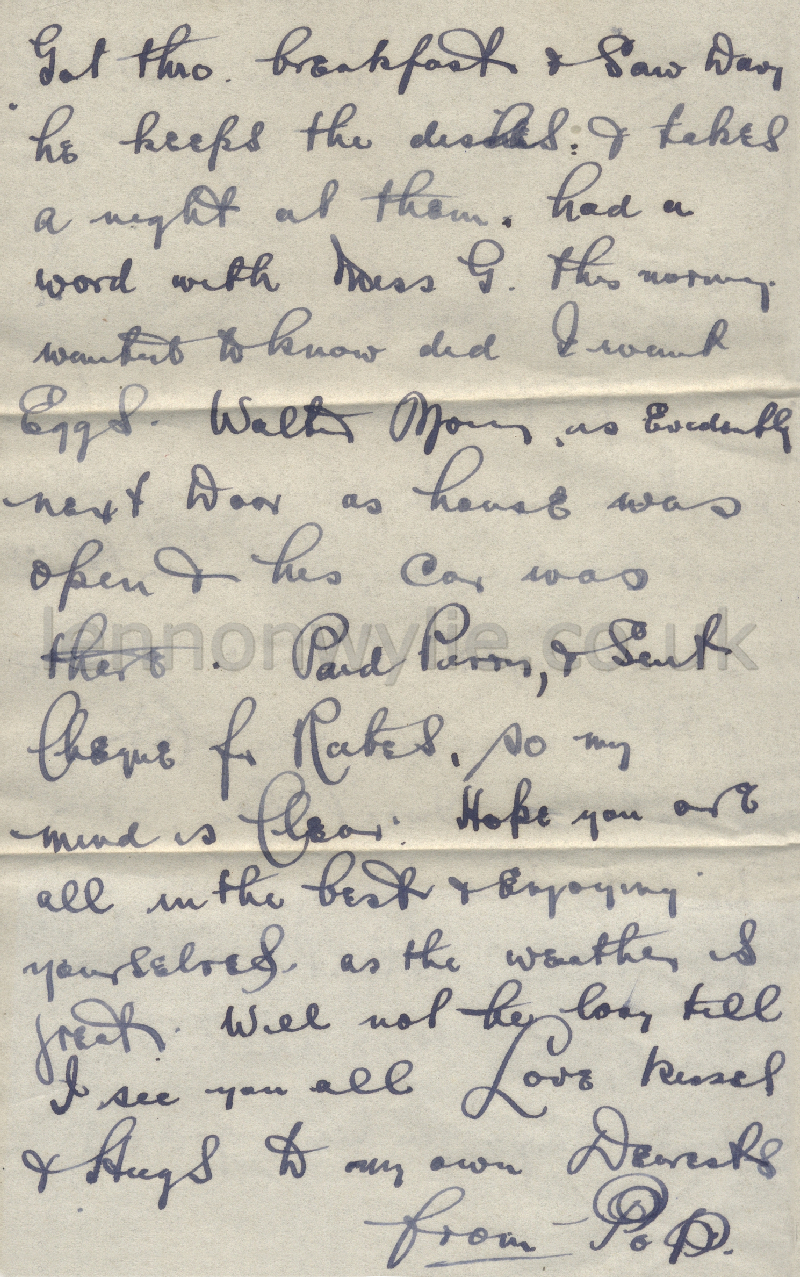 Got thro. breakfast & Saw Davy
he keeps the dishes. & takes
a night at them. had a
word with Miss G. this morning.
wanted to know did I want
Eggs. Walter is Evidently
next Door as house was
open & his Car was
there. Paid & Sent
Cheque for Rates. so my
mind is Clear. Hope you are
all in the best & Enjoying
yourselves. as the weather is
great. Will not be long till
I see you all Love Kisses
& Hugs to my own Dearests
from Pop.
lennonwylie.co.uk